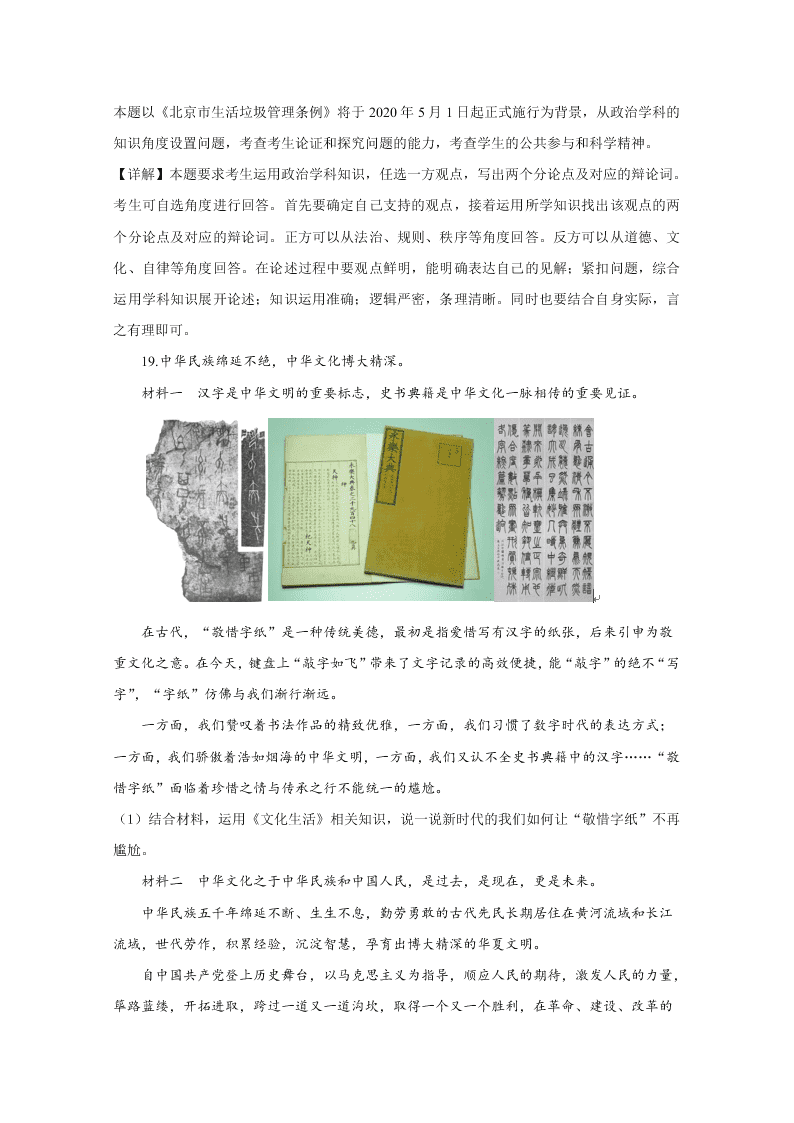 本题以《北京市生活垃圾管理条例》将于 2020 年 5 月 1 日起正式施行为背景，从政治学科的
知识角度设置问题，考查考生论证和探究问题的能力，考查学生的公共参与和科学精神。
【详解】本题要求考生运用政治学科知识，任选一方观点，写出两个分论点及对应的辩论词。
考生可自选角度进行回答。首先要确定自己支持的观点，接着运用所学知识找出该观点的两
个分论点及对应的辩论词。正方可以从法治、规则、秩序等角度回答。反方可以从道德、文
化、自律等角度回答。在论述过程中要观点鲜明，能明确表达自己的见解；紧扣问题，综合
运用学科知识展开论述；知识运用准确；逻辑严密，条理清晰。同时也要结合自身实际，言
之有理即可。
19.中华民族绵延不绝，中华文化博大精深。
材料一　汉字是中华文明的重要标志，史书典籍是中华文化一脉相传的重要见证。
永樂大典
在古代，“敬惜字纸”是一种传统美德，最初是指爱惜写有汉字的纸张，后来引申为敬
重文化之意。在今天，键盘上“敲字如飞”带来了文字记录的高效便捷，能“敲字”的绝不“写
字”，“字纸”仿佛与我们渐行渐远。
一方面，我们赞叹着书法作品的精致优雅，一方面，我们习惯了数字时代的表达方式；
一方面，我们骄傲着浩如烟海的中华文明，一方面，我们又认不全史书典籍中的汉字……“敬
惜字纸”面临着珍惜之情与传承之行不能统一的尴尬。
（1）结合材料，运用《文化生活》相关知识，说一说新时代的我们如何让“敬惜字纸”不再
尴尬。
材料二　中华文化之于中华民族和中国人民，是过去，是现在，更是未来。
中华民族五千年绵延不断、生生不息，勤劳勇敢的古代先民长期居住在黄河流域和长江
流域，世代劳作，积累经验，沉淀智慧，孕育出博大精深的华夏文明。
自中国共产党登上历史舞台，以马克思主义为指导，顺应人民的期待，激发人民的力量，
筚路蓝缕，开拓进取，跨过一道又一道沟坎，取得一个又一个胜利，在革命、建设、改革的